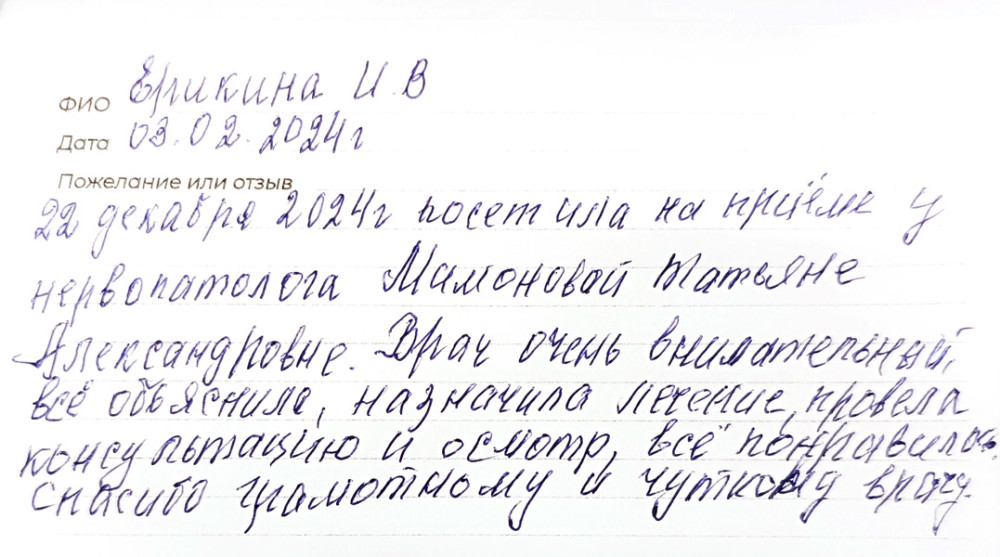 ФИО Ерикина И.В
Дата 03.02.2024г
Пожелание или отзыв
22 декабря 2024г посетила на приёме у
нервопатолога Мамоновой Татьяне
Александровне. Врач очень внимательный,
всё объяснила, назначила лечение, провела
консультацию и осмотр, всё понравилось.
Спасибо грамотному и чуткому врачу.